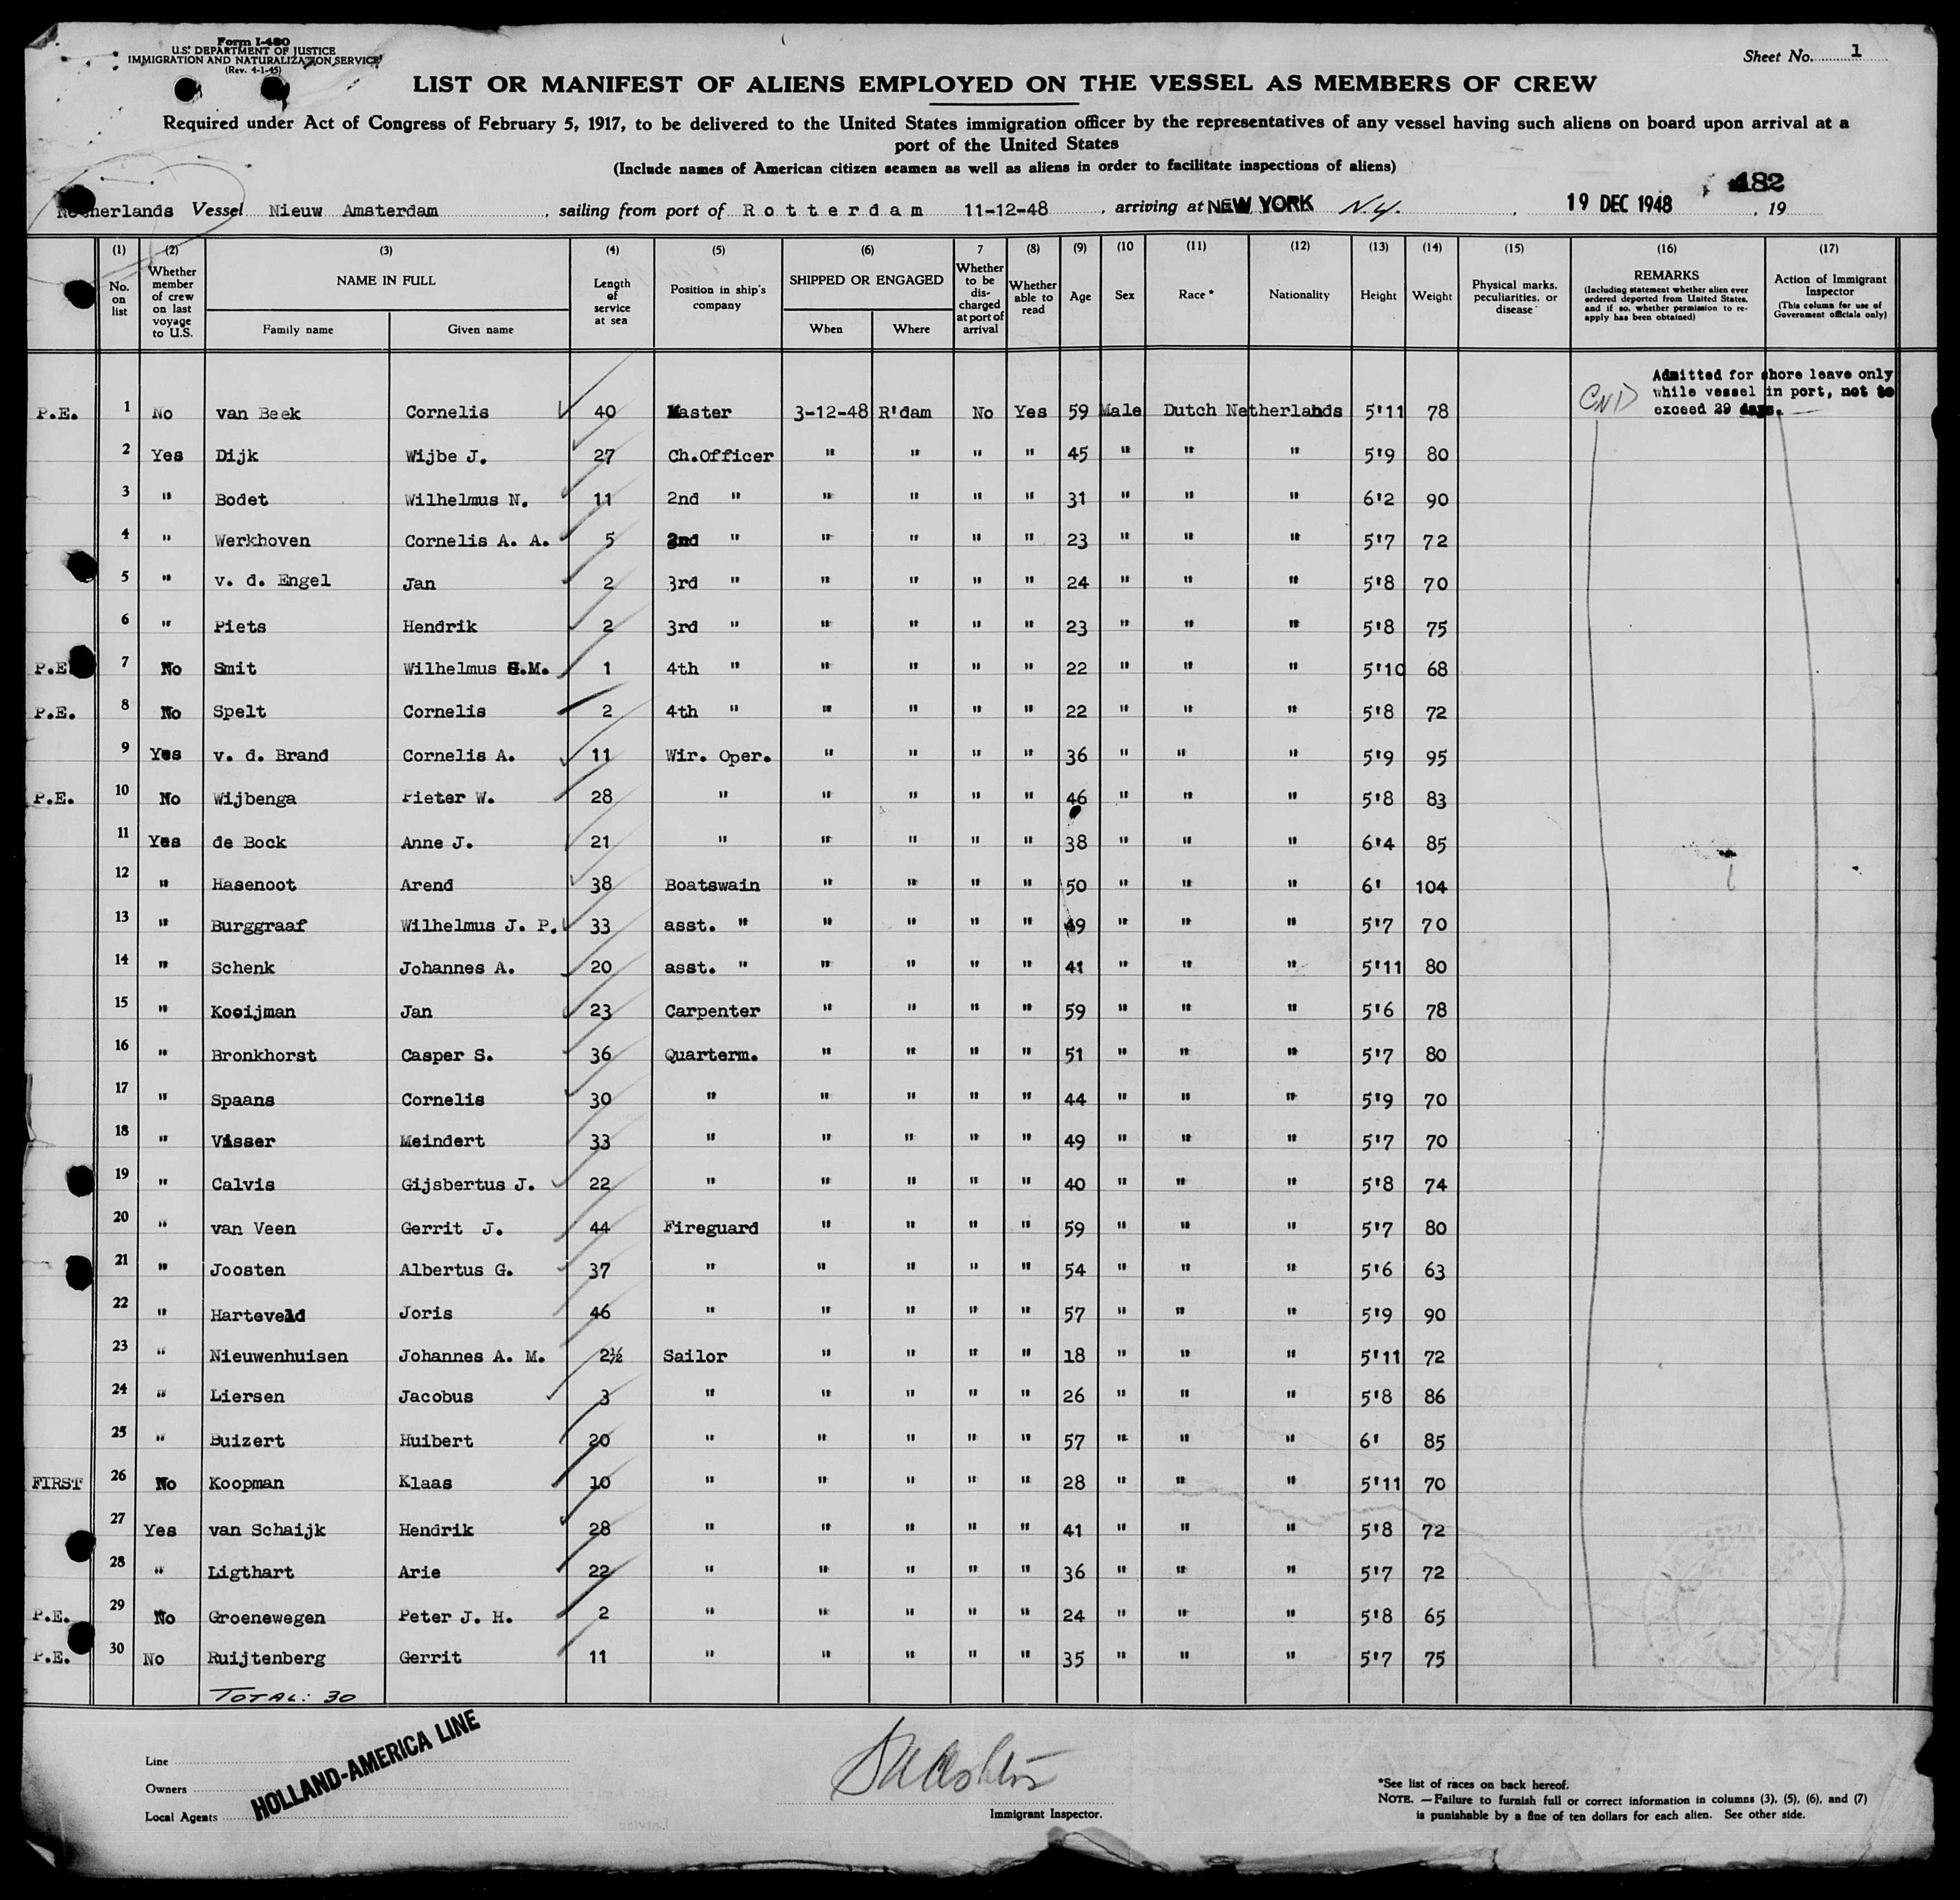 Form I-480
U.S. DEPARTMENT OF JUSTICE
IMMIGRATION AND NATURALIZATION SERVICE
(Rev. 4-1-45)
Sheet No. 1
LIST OR MANIFEST OF ALIENS EMPLOYED ON THE VESSEL AS MEMBERS OF CREW
Required under Act of Congress of February 5, 1917, to be delivered to the United States immigration officer by the representatives of any vessel having such aliens on board upon arrival at a
port of the United States
(Include names of American citizen seamen as well as aliens in order to facilitate inspections of aliens)
482
Netherlands Vessel Nieuw Amsterdam, sailing from port of Rotterdam 11-12-48, arriving at NEW YORK N.Y., 19 DEC 1948, 19
(1) (2) (3) (4) (5) (6) 7 (8) (9) (10 (11) (12) (13) (14) (15) (16) (17)
No. on list
Whether member of crew on last voyage to U.S.
NAME IN FULL
Family name Given name
Length of service at sea
Position in ship's company
SHIPPED OR ENGAGED
When Where
Whether to be discharged at port of arrival
Whether able to read
Age
Sex
Race *
Nationality
Height
Weight
Physical marks, peculiarities, or disease
REMARKS
(Including statement whether alien ever ordered deported from United States, and if so, whether permission to reapply has been obtained)
Action of Immigrant Inspector
(This column for use of Government officials only)
Admitted for shore leave only
while vessel in port, not to
exceed 29 days.
P.E. 1 No van Beek Cornelis 40 Master 3-12-48 R'dam No Yes 59 Male Dutch Netherlands 5'11 78
2 Yes Dijk Wijbe J. 27 Ch.Officer " " " " 45 " " " 5'9 80
3 " Bodet Wilhelmus N. 11 2nd " " " " " 31 " " " 6'2 90
4 " Werkhoven Cornelis A. A. 5 2nd " " " " " 23 " " " 5'7 72
5 " v. d. Engel Jan 2 3rd " " " " " 24 " " " 5'8 70
6 " Piets Hendrik 2 3rd " " " " " 23 " " " 5'8 75
P.E. 7 No Smit Wilhelmus G.M. 1 4th " " " " " 22 " " " 5'10 68
P.E. 8 No Spelt Cornelis 2 4th " " " " " 22 " " " 5'8 72
9 Yes v. d. Brand Cornelis A. 11 Wir. Oper. " " " " 36 " " " 5'9 95
P.E. 10 No Wijbenga Pieter W. 28 " " " " " 46 " " " 5'8 83
11 Yes de Bock Anne J. 21 " " " " " 38 " " " 6'4 85
12 " Hasenoot Arend 38 Boatswain " " " " 50 " " " 6' 104
13 " Burggraaf Wilhelmus J. P. 33 asst. " " " " " 49 " " " 5'7 70
14 " Schenk Johannes A. 20 asst. " " " " " 41 " " " 5'11 80
15 " Kooijman Jan 23 Carpenter " " " " 59 " " " 5'6 78
16 " Bronkhorst Casper S. 36 Quarterm. " " " " 51 " " " 5'7 80
17 " Spaans Cornelis 30 " " " " " 44 " " " 5'9 70
18 " Visser Meindert 33 " " " " " 49 " " " 5'7 70
19 " Calvis Gijsbertus J. 22 " " " " " 40 " " " 5'8 74
20 " van Veen Gerrit J. 44 Fireguard " " " " 59 " " " 5'7 80
21 " Joosten Albertus G. 37 " " " " " 54 " " " 5'6 63
22 " Harteveld Joris 46 " " " " " 57 " " " 5'9 90
23 " Nieuwenhuisen Johannes A. M. 2½ Sailor " " " " 18 " " " 5'11 72
24 " Liersen Jacobus 3 " " " " " 26 " " " 5'8 86
25 " Buizert Huibert 20 " " " " " 57 " " " 6' 85
FIRST 26 No Koopman Klaas 10 " " " " " 28 " " " 5'11 70
27 Yes van Schaijk Hendrik 28 " " " " " 41 " " " 5'8 72
28 " Ligthart Arie 22 " " " " " 36 " " " 5'7 72
P.E. 29 No Groenewegen Peter J. H. 2 " " " " " 24 " " " 5'8 65
P.E. 30 No Ruijtenberg Gerrit 11 " " " " " 35 " " " 5'7 75
TOTAL: 30
Line
Owners
Local Agents
HOLLAND-AMERICA LINE
Immigrant Inspector.
*See list of races on back hereof.
NOTE.—Failure to furnish full or correct information in columns (3), (5), (6), and (7)
is punishable by a fine of ten dollars for each alien. See other side.